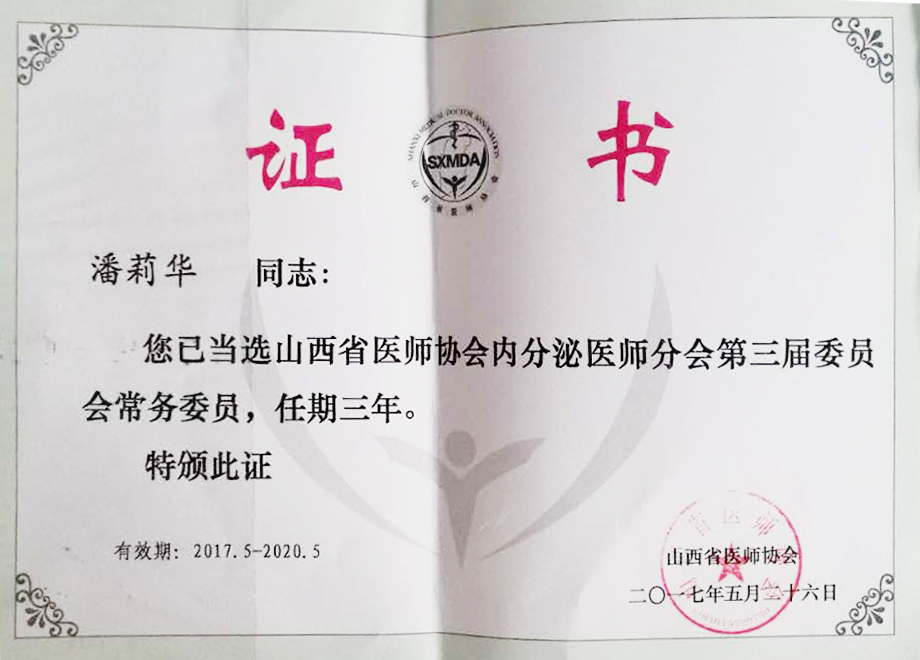 证书
SHANXI MEDICAL DOCTOR ASSOCIATION
SXMDA
山西省医师协会
潘莉华 同志：
您已当选山西省医师协会内分泌医师分会第三届委员
会常务委员，任期三年。
特颁此证
有效期：2017.5-2020.5
山西省医师协会
山西省医师协会
二〇一七年五月二十六日